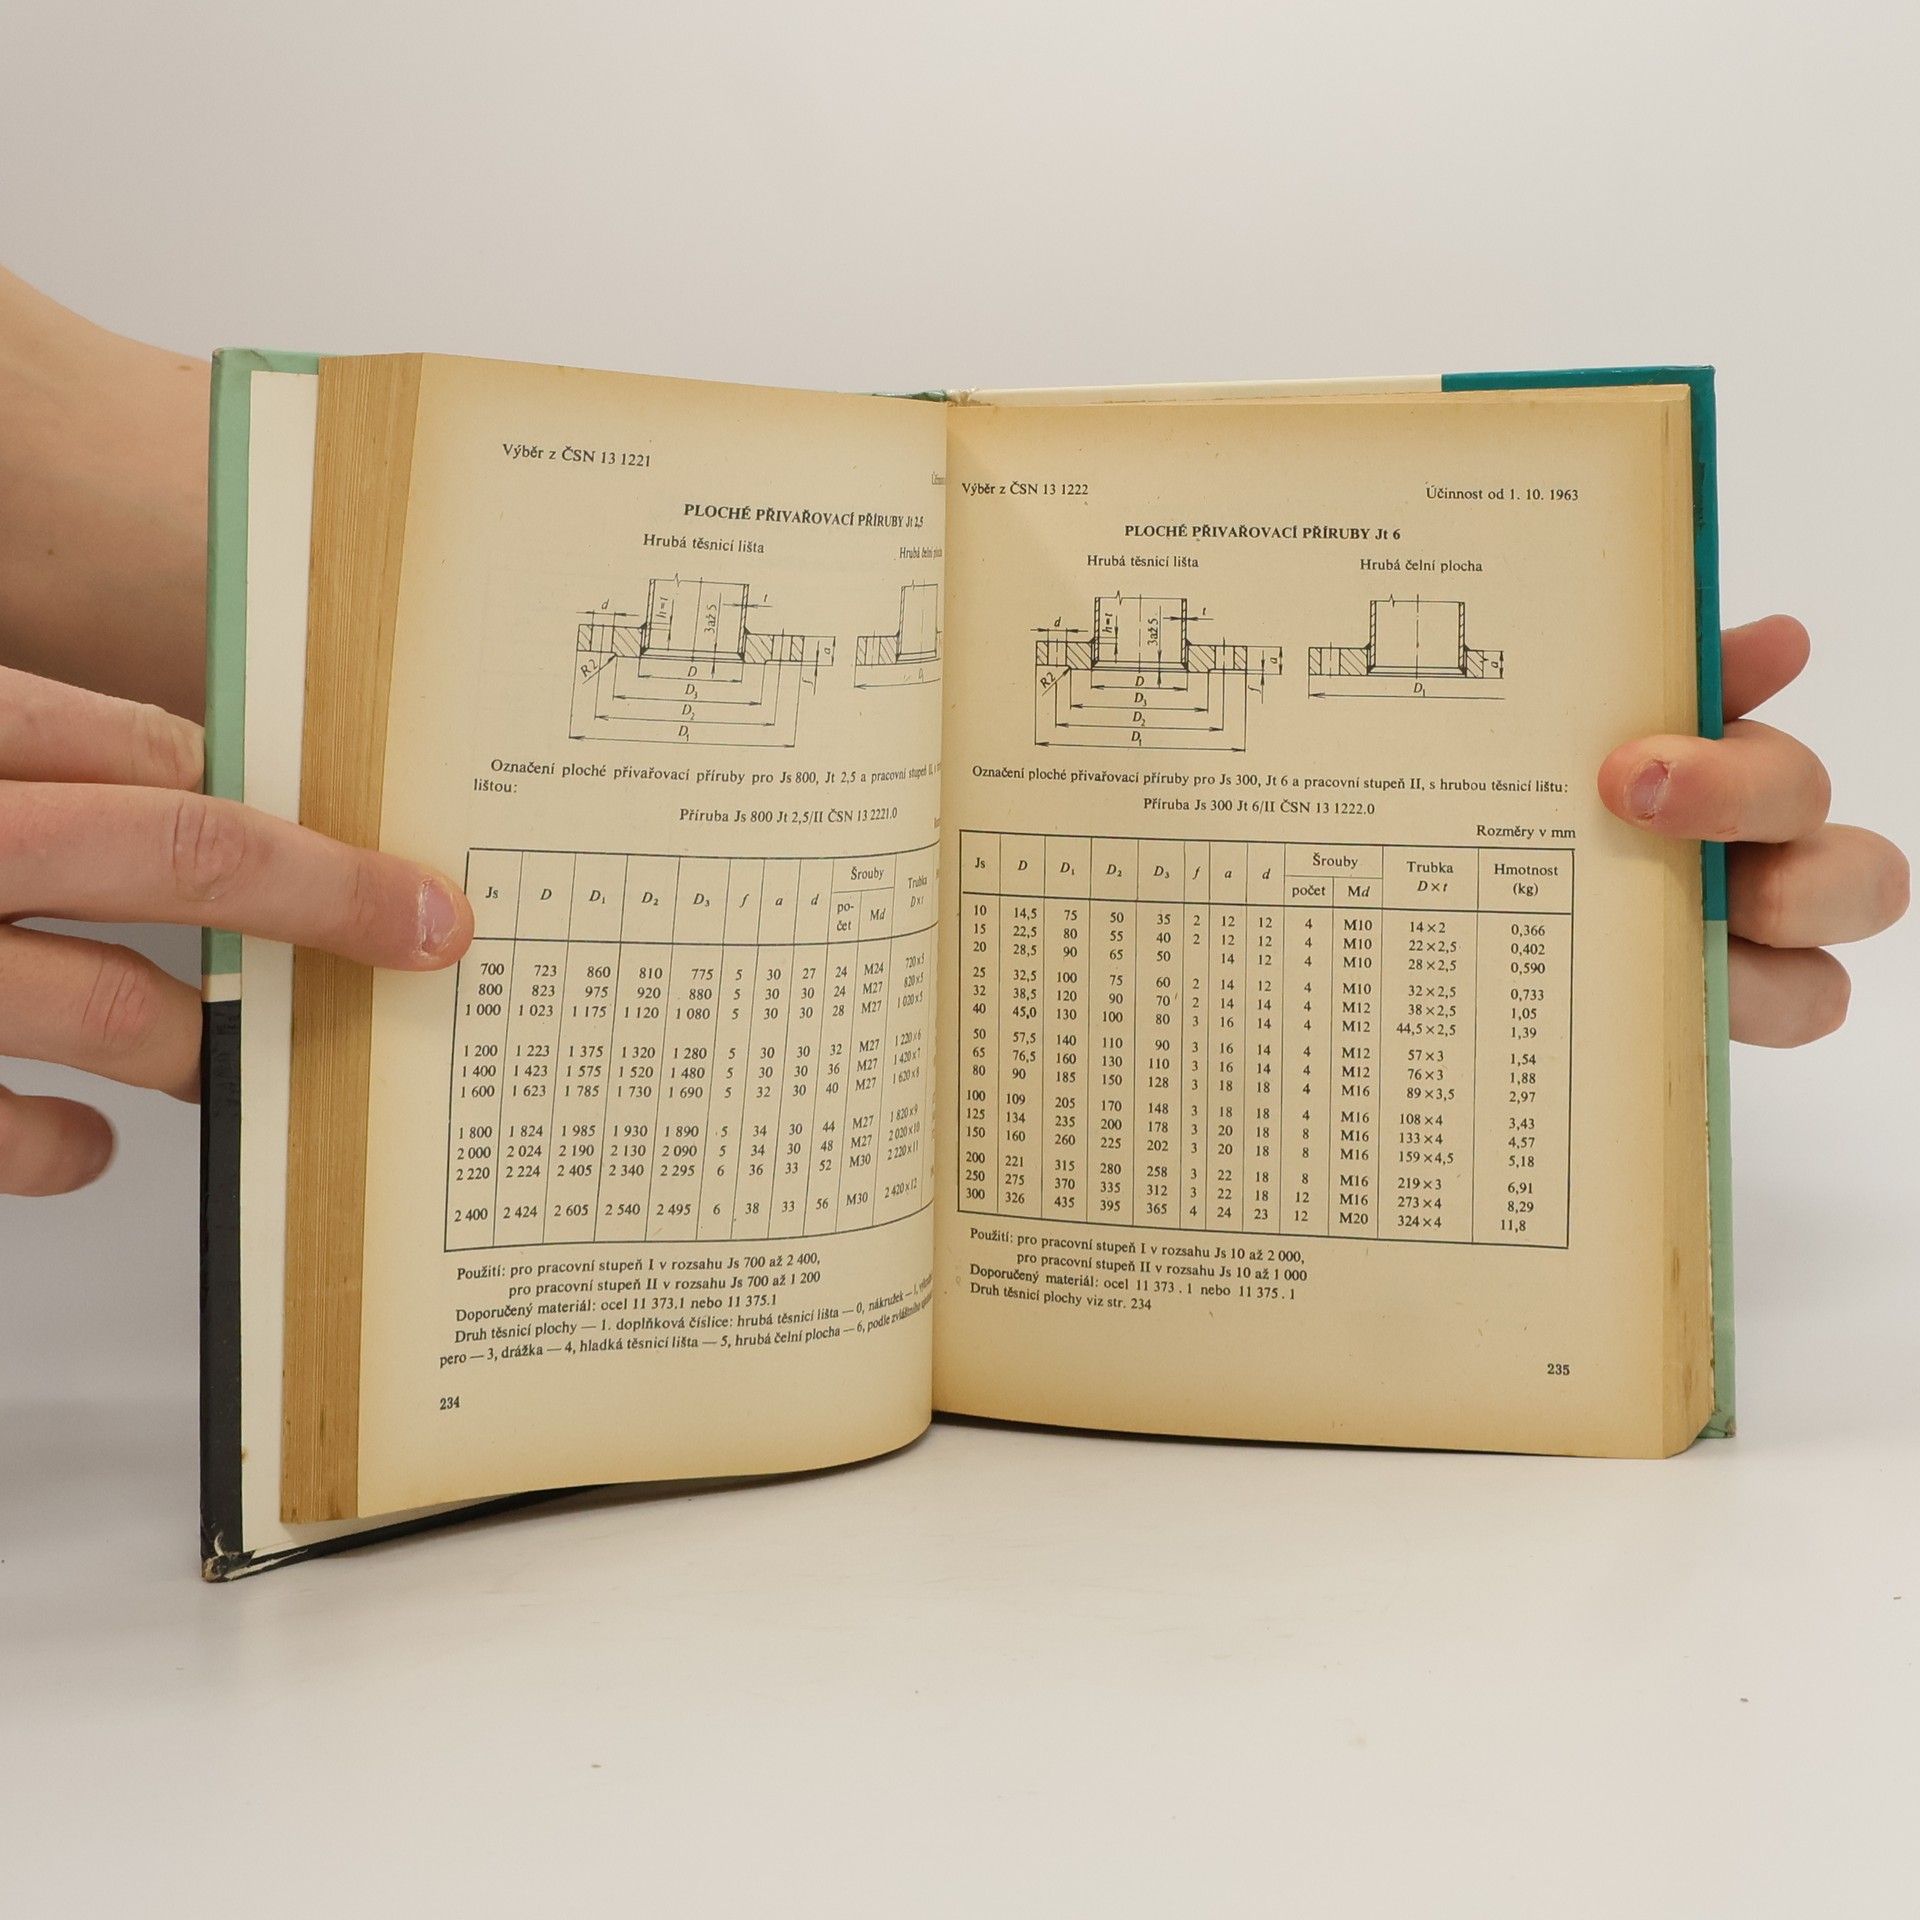 Výběr z ČSN 13 1221
PLOCHÉ PŘIVAŘOVACÍ PŘÍRUBY Jt 2,5
Hrubá těsnicí lišta
Hrubá čelní
d
h=t
3až5
t
a
f
R2
D
D3
D2
D1
Označení ploché přivařovací příruby pro Js 800, Jt 2,5 a pracovní stupeň II,
lištou:
Příruba Js 800 Jt 2,5/II ČSN 13 2221.0
Js D D1 D2 D3 f a d Šrouby Trubka
po-čet Md D×t
700 723 860 810 775 5 30 27 24 M24 720×5
800 823 975 920 880 5 30 30 24 M27 820×5
1 000 1 023 1 175 1 120 1 080 5 30 30 28 M27 1 020×5
1 200 1 223 1 375 1 320 1 280 5 30 30 32 M27 1 220×6
1 400 1 423 1 575 1 520 1 480 5 30 30 36 M27 1 420×7
1 600 1 623 1 785 1 730 1 690 5 32 30 40 M27 1 620×8
1 800 1 824 1 985 1 930 1 890 5 34 30 44 M27 1 820×9
2 000 2 024 2 190 2 130 2 090 5 34 30 48 M27 2 020×10
2 220 2 224 2 405 2 340 2 295 6 36 33 52 M30 2 220×11
2 400 2 424 2 605 2 540 2 495 6 38 33 56 M30 2 420×12
Použití: pro pracovní stupeň I v rozsahu Js 700 až 2 400,
pro pracovní stupeň II v rozsahu Js 700 až 1 200
Doporučený materiál: ocel 11 373.1 nebo 11 375.1
Druh těsnicí plochy — 1. doplňková číslice: hrubá těsnicí lišta — 0, nákružek — 1,
pero — 3, drážka — 4, hladká těsnicí lišta — 5, hrubá čelní plocha — 6, podle zvláštního
234
Výběr z ČSN 13 1222 Účinnost od 1. 10. 1963
PLOCHÉ PŘIVAŘOVACÍ PŘÍRUBY Jt 6
Hrubá těsnicí lišta Hrubá čelní plocha
d
h=t
3až5
t
a
f
R2
D
D3
D2
D1
a
D1
Označení ploché přivařovací příruby pro Js 300, Jt 6 a pracovní stupeň II, s hrubou těsnicí lištu:
Příruba Js 300 Jt 6/II ČSN 13 1222.0
Rozměry v mm
Js D D1 D2 D3 f a d Šrouby Trubka Hmotnost
počet Md D×t (kg)
10 14,5 75 50 35 2 12 12 4 M10 14×2 0,366
15 22,5 80 55 40 2 12 12 4 M10 22×2,5 0,402
20 28,5 90 65 50 14 12 4 M10 28×2,5 0,590
25 32,5 100 75 60 2 14 12 4 M10 32×2,5 0,733
32 38,5 120 90 70 2 14 14 4 M12 38×2,5 1,05
40 45,0 130 100 80 3 16 14 4 M12 44,5×2,5 1,39
50 57,5 140 110 90 3 16 14 4 M12 57×3 1,54
65 76,5 160 130 110 3 16 14 4 M12 76×3 1,88
80 90 185 150 128 3 18 18 4 M16 89×3,5 2,97
100 109 205 170 148 3 18 18 4 M16 108×4 3,43
125 134 235 200 178 3 20 18 8 M16 133×4 4,57
150 160 260 225 202 3 20 18 8 M16 159×4,5 5,18
200 221 315 280 258 3 22 18 8 M16 219×3 6,91
250 275 370 335 312 3 22 18 12 M16 273×4 8,29
300 326 435 395 365 4 24 23 12 M20 324×4 11,8
Použití: pro pracovní stupeň I v rozsahu Js 10 až 2 000,
pro pracovní stupeň II v rozsahu Js 10 až 1 000
Doporučený materiál: ocel 11 373 . 1 nebo 11 375 . 1
Druh těsnicí plochy viz str. 234
235